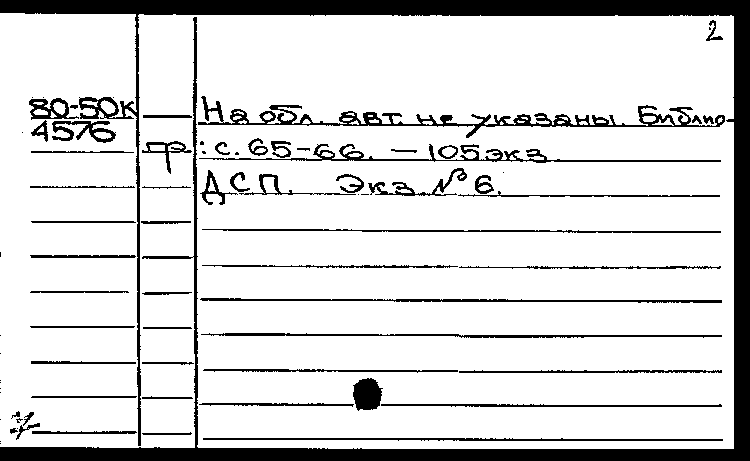 2
80-50к — На обл. авт. не указаны. Библио-
4576
гр.: с. 65-66. — 105 экз.
ДСП. Экз. № 6.